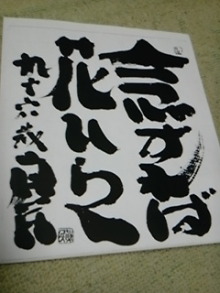 念ずれば
花ひらく
九十六歳 真民